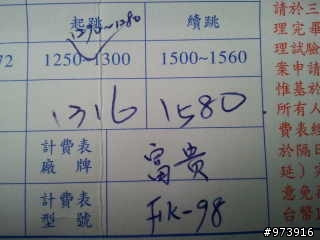 起跳 續跳
1250~1280
72 1250~1300 1500~1560
1316 1580
計費表廠牌 富貴
計費表型號 FK-98
請於三
理完畢
理試驗
案申請
惟基於
所有人
費表經
於隔日
延）次
意免
台幣1
#973916